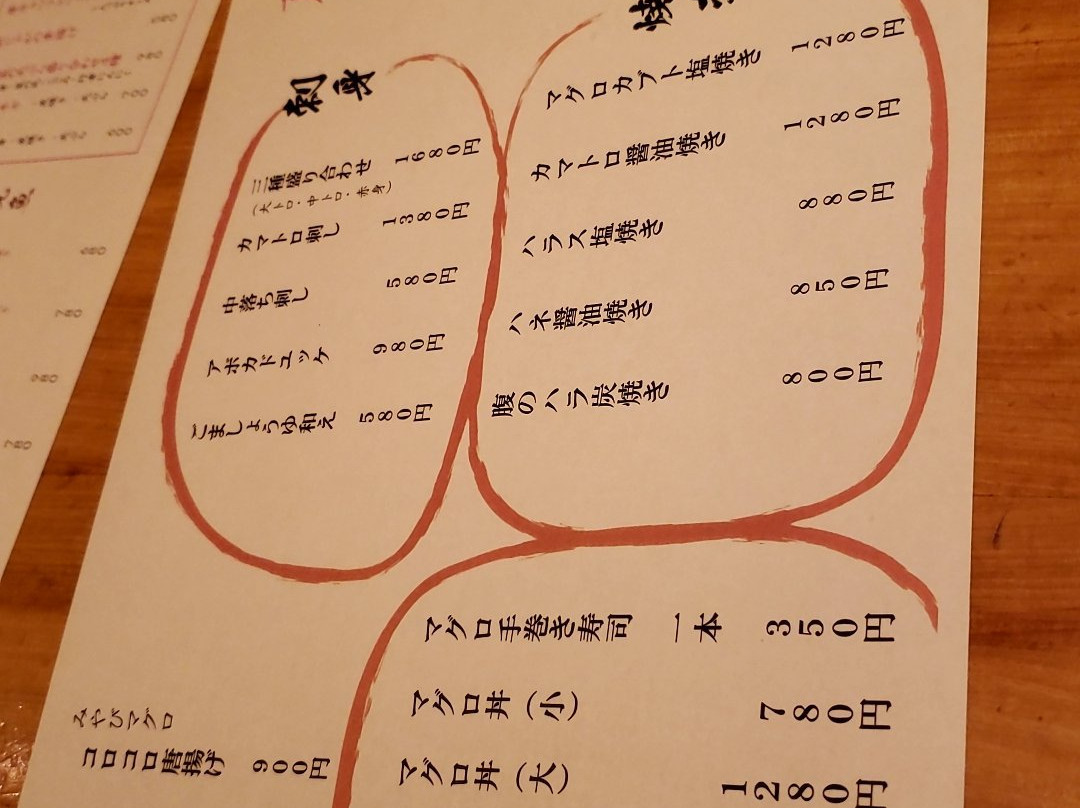 刺身
三種盛り合わせ 1680円
(大トロ・中トロ・赤身)
カマトロ刺し 1380円
中落ち刺し 580円
アボカドユッケ 980円
ごましょうゆ和え 580円
マグロカブト塩焼き 1280円
カマトロ醤油焼き 1280円
ハラス塩焼き 880円
ハネ醤油焼き 850円
腹のハラ炭焼き 800円
マグロ手巻き寿司 一本 350円
マグロ丼(小) 780円
マグロ丼(大) 1280円
みやびマグロ
コロコロ唐揚げ 900円
680
780
980
780